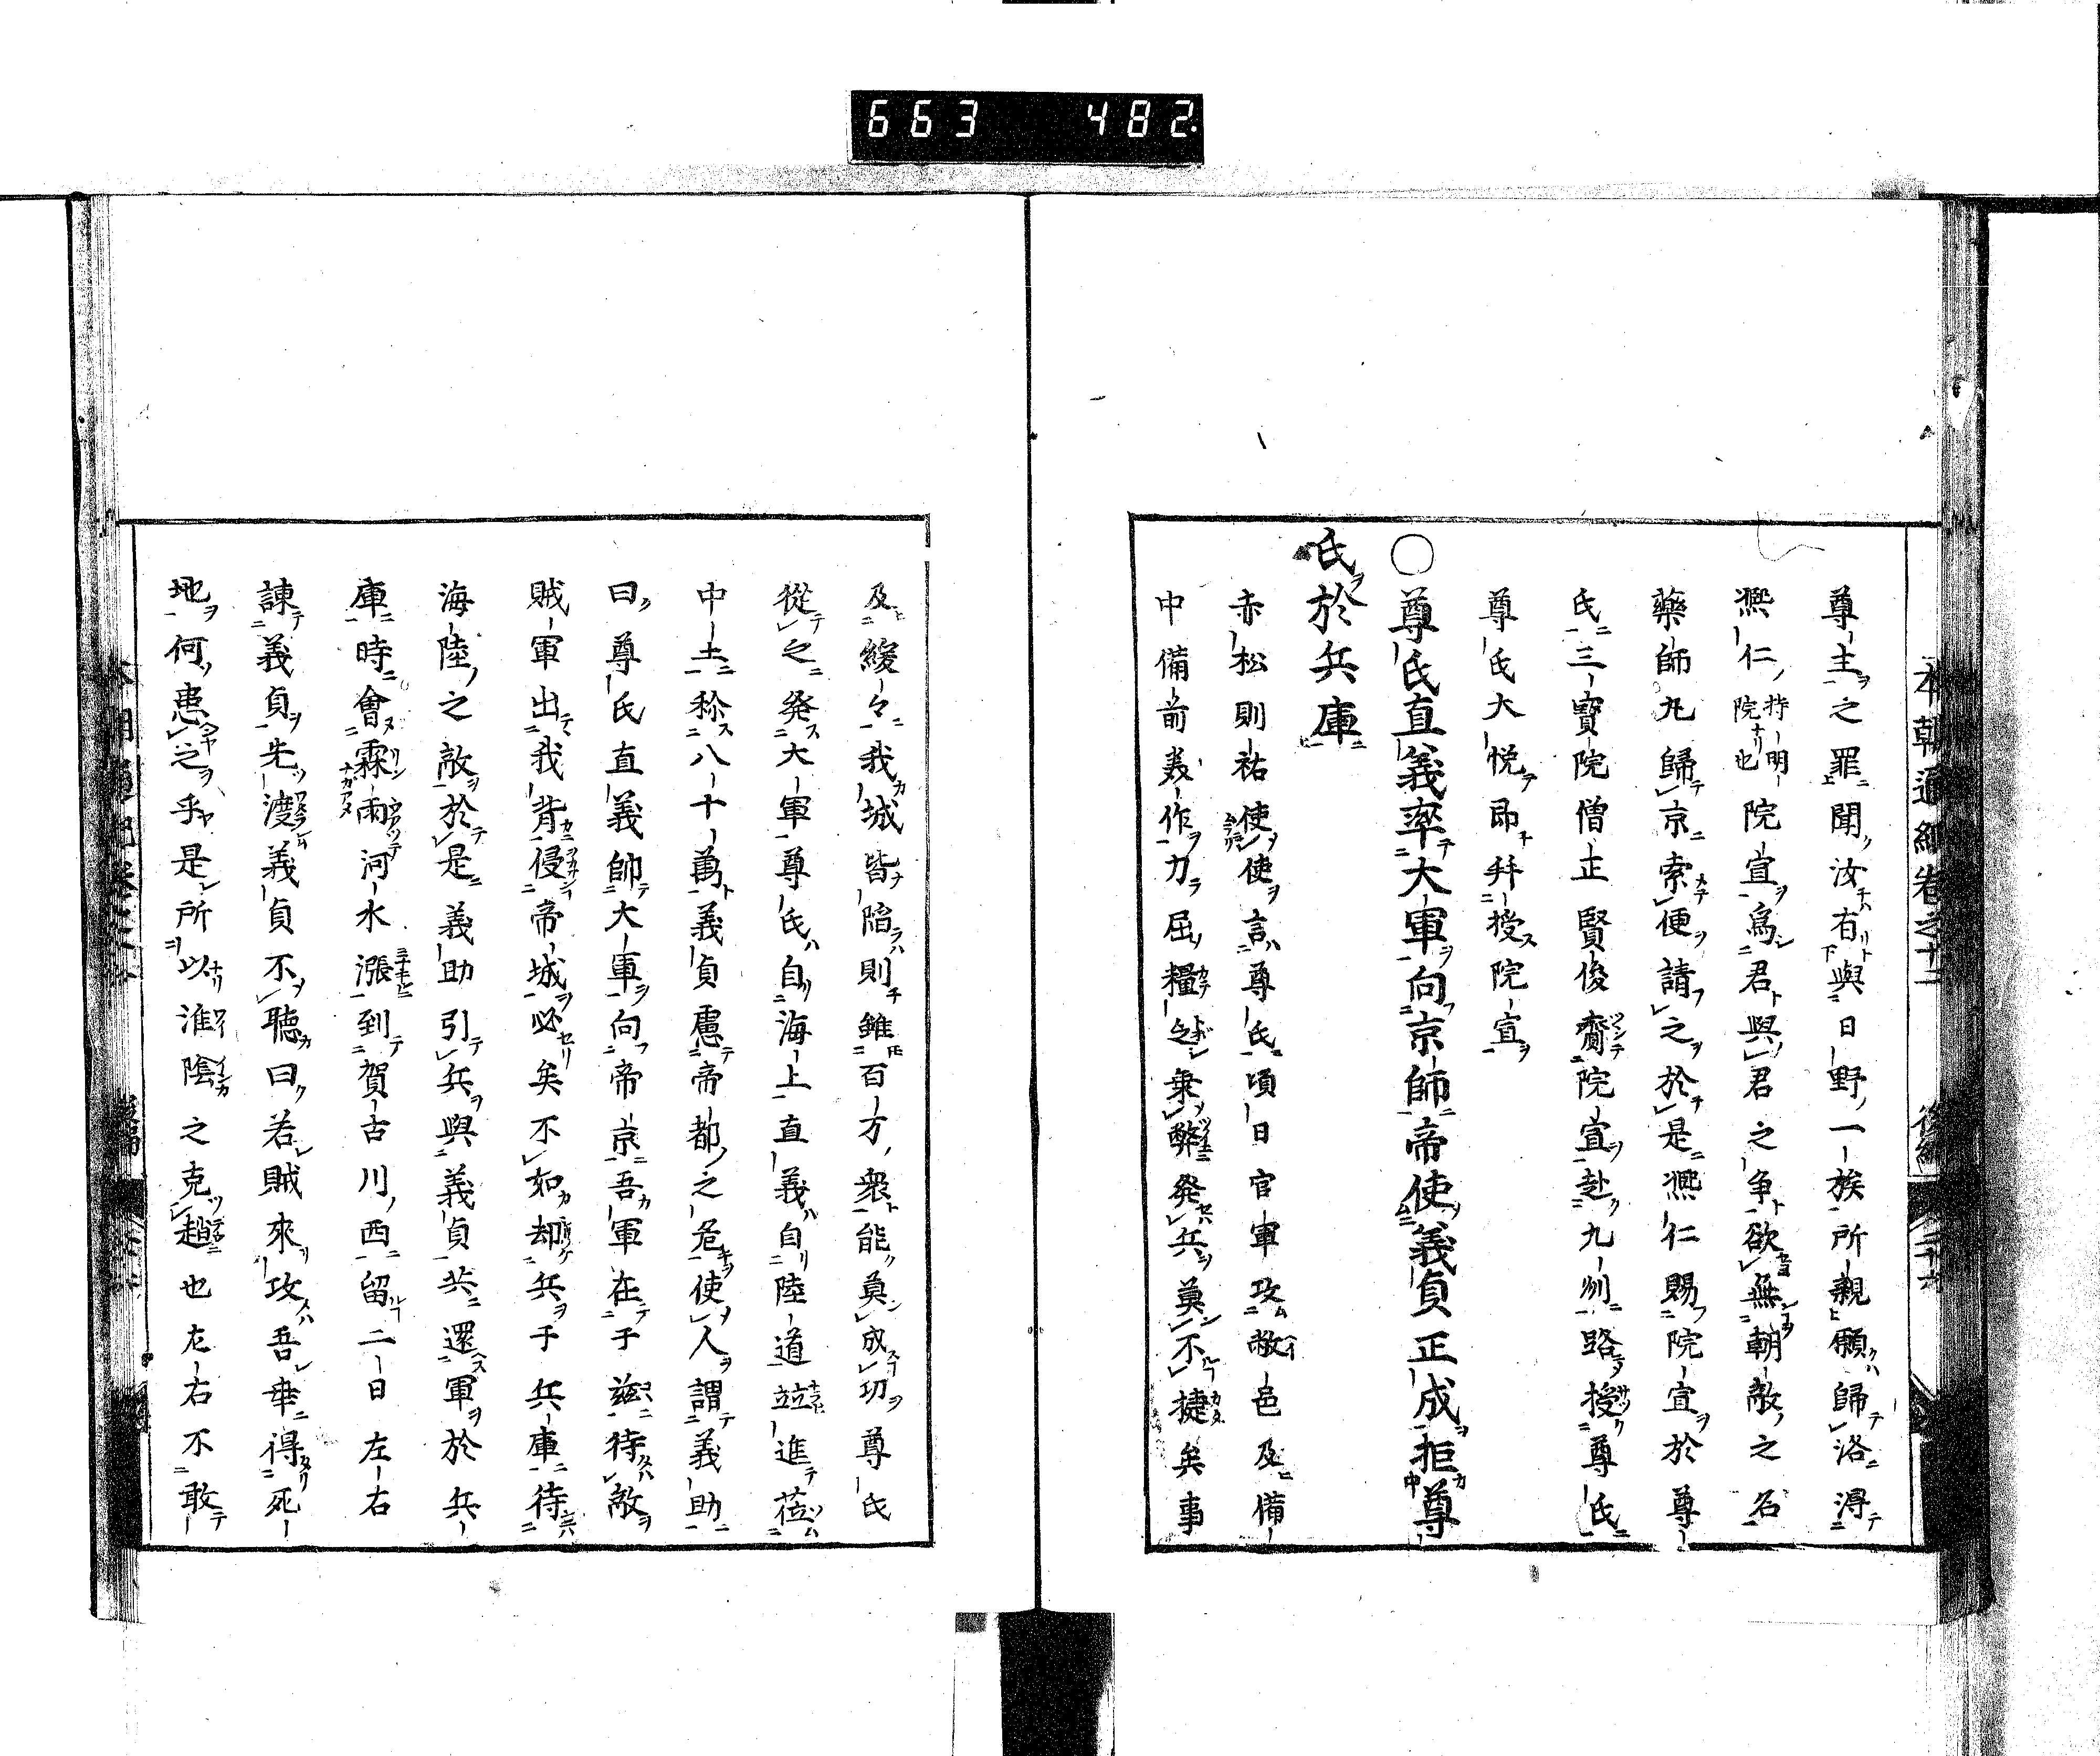 663 482.
本朝通紀卷之十二 後編 二十六
尊主之罪聞汝有與日野一族所親願歸洛得
熈仁持明院也院宣爲君與君之争欲無朝敵之名
藥師丸歸京索便請之於是熈仁賜院宣於尊
氏三寳院僧正賢俊齎院宣赴九州路授尊氏
尊氏大悦即拝授院宣
○尊氏直義率大軍向京師帝使義貞正成拒尊
氏於兵庫
赤松則祐使使言尊氏頃日官軍攻敝邑及備
中備前美作力屈糧乏乗弊発兵莫不捷矣事
及緩々我城皆陷則雖百方衆能莫成功尊氏
從之発大軍尊氏自海上直義自陸道竝進莅
中土称八十萬義貞慮帝都之危使人謂義助
曰尊氏直義帥大軍向帝京吾軍在于玆待敵
賊軍出我背侵帝城必矣不如却兵于兵庫待
海陸之敵於是義助引兵與義貞共還軍於兵
庫時會霖雨河水漲到賀古川西留二日左右
諌義貞先渡義貞不聴曰若賊來攻吾畢得死
地何患之乎是所以淮陰之克趙也左右不敢